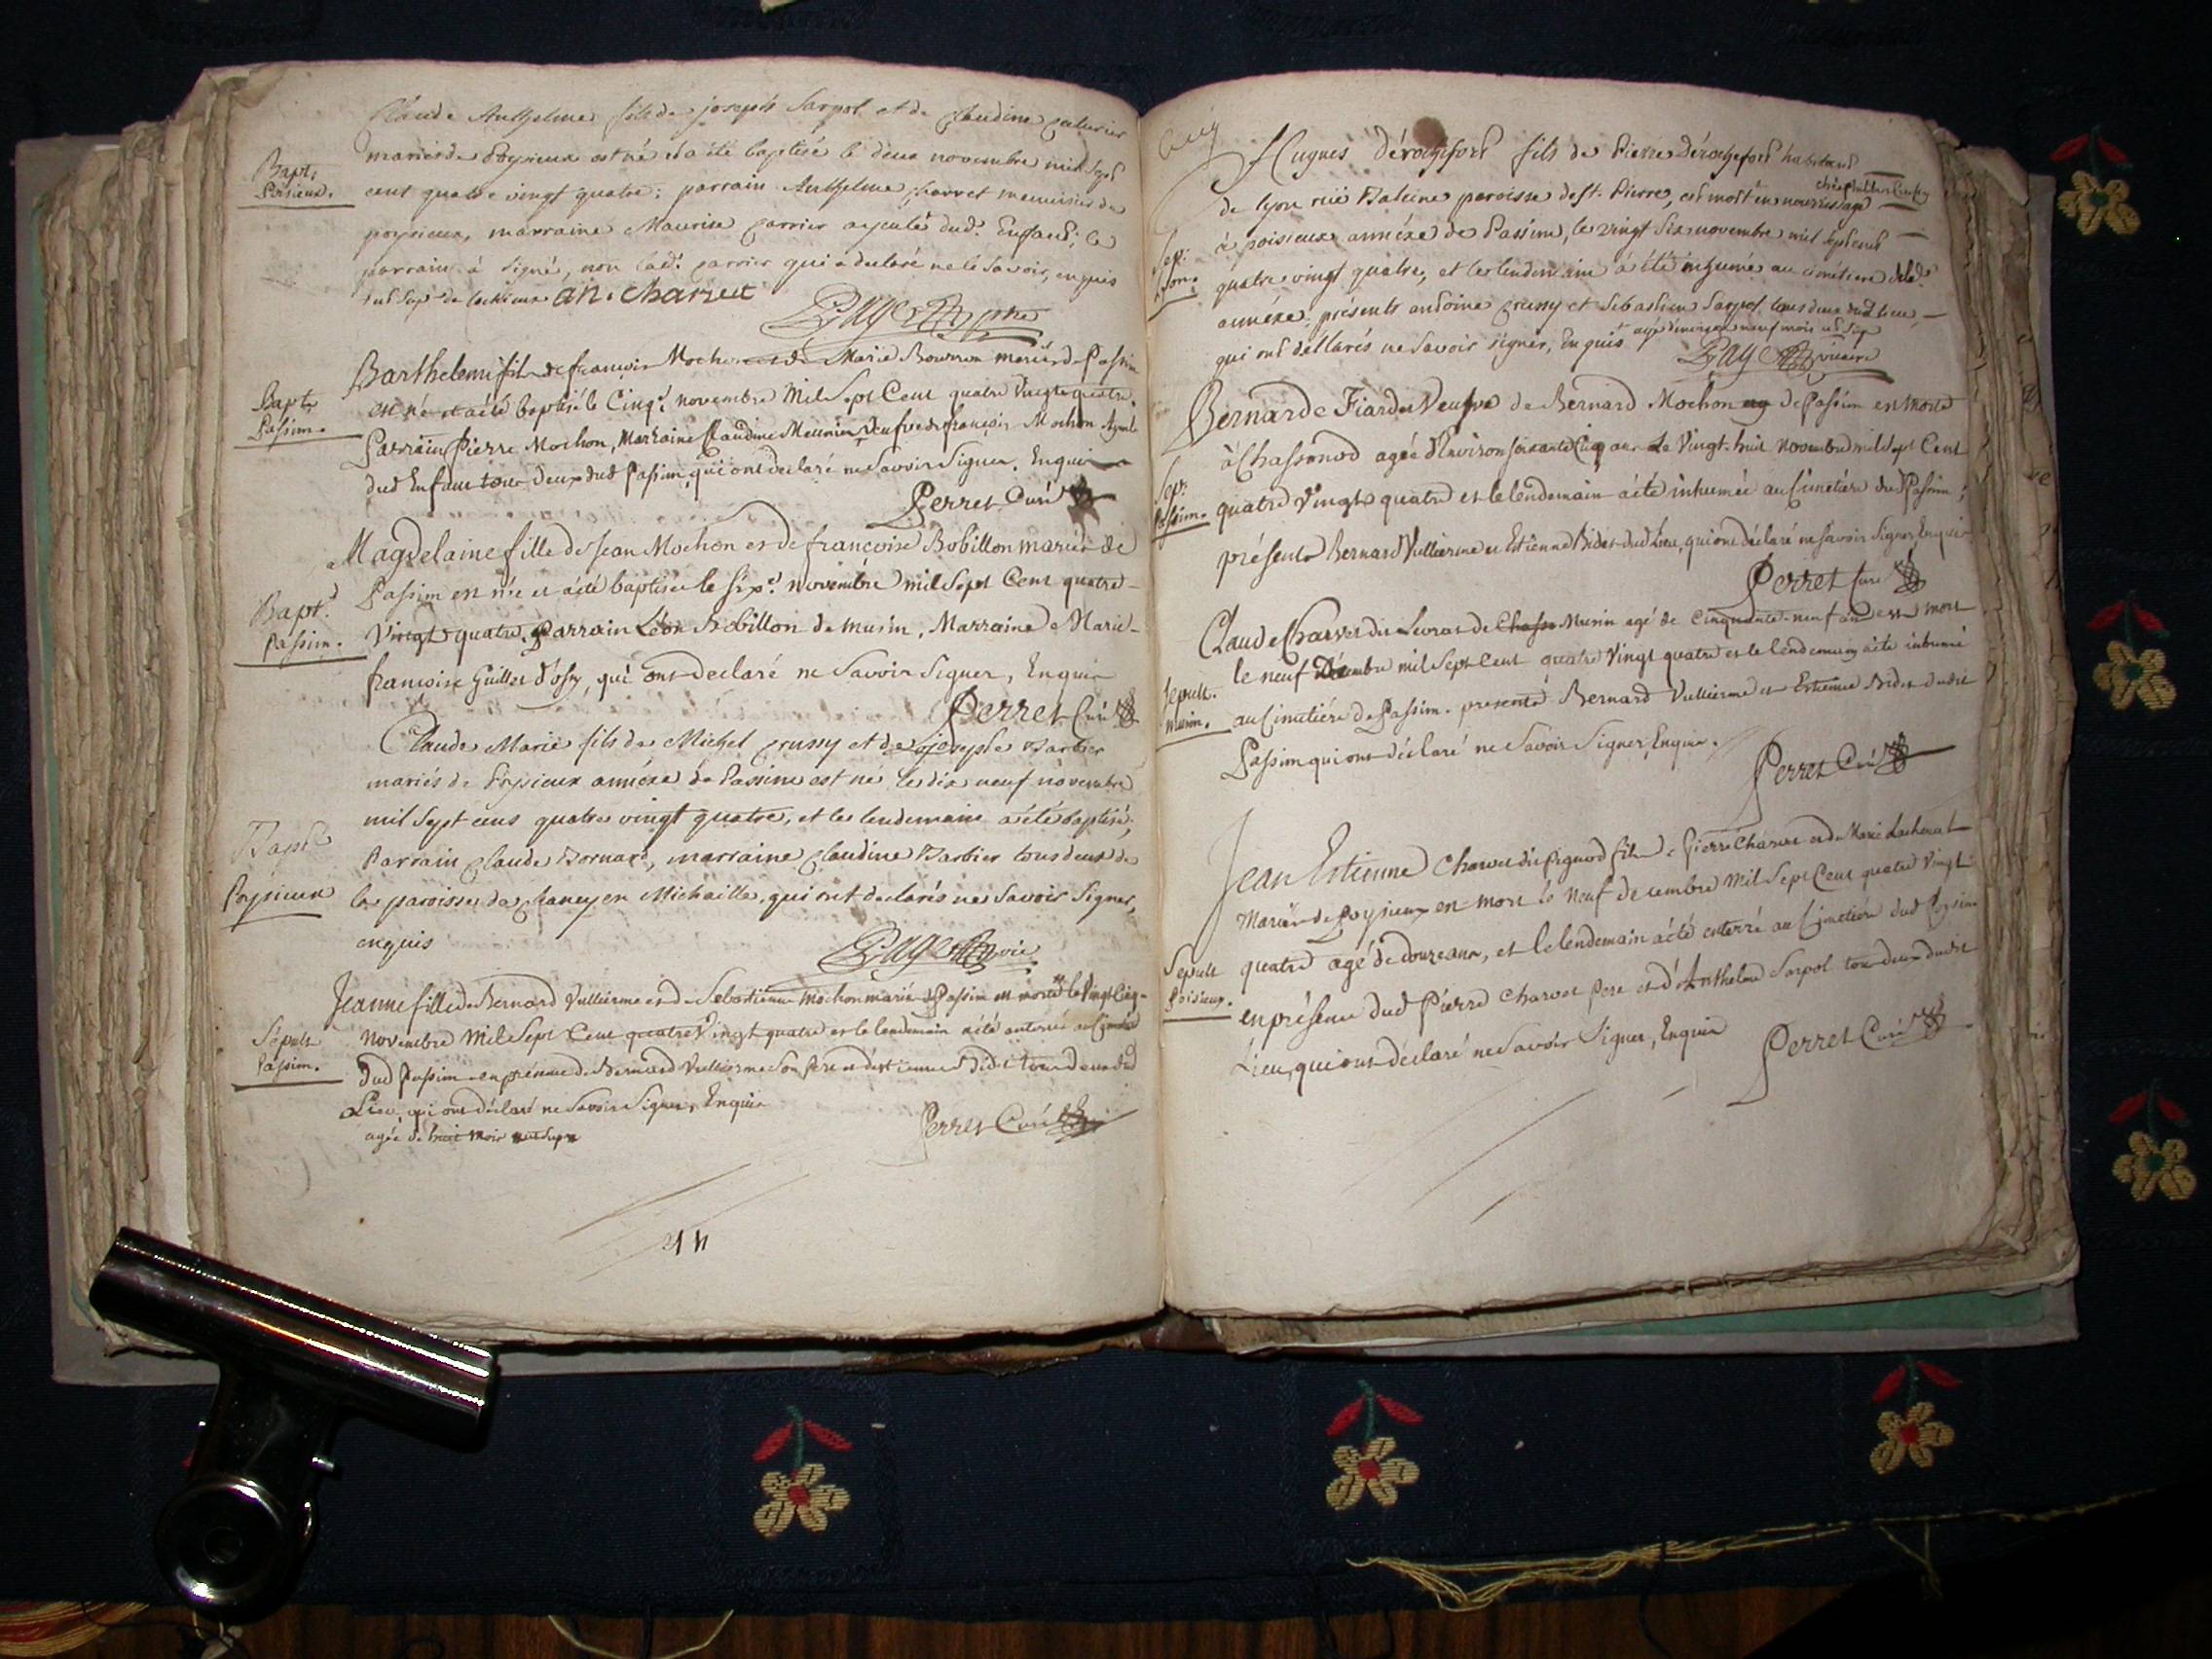 Claude Anthelme fils de joseph Sarpol et de Claudine
Bapt.
Poisieux.
mariés de Poysieux est né et a été baptisé le deux novembre mil sept
cent quatre vingt quatre; parrain Anthelme Charvet menuisier de
poysieux, marraine Maurise Carrier ayeule dud. Enfant; le
parrain à signé, non lad. Carrier qui a declaré ne le savoir, enquis
an. Charvet
Barthelemi fils de françois Mochon et de Marie mariés de Passin
Bapt.
Passim.
est né et a été baptisé le Cinq. novembre Mil Sept Cent quatre Vingts quatre.
Parrain Pierre Mochon, Marraine Claudine Meunier Veufve de françois Mochon Ayeule
dud Enfant tous deux dud Passim, qui ont declaré ne Savoir Signer. Enquis
Perret Curé
Magdelaine fille de Jean Mochon et de françoise Bobillon mariés de
Bapt.
Passim.
Passim est née et a été baptisée le six. novembre mil Sept Cent quatre
Vingt quatre. Parrain Léon Bobillon de Musin, Marraine Marie
françoise Guillot d'ossy, qui ont declaré ne Savoir Signer, Enquis
Perret Curé
Claude Marie fils de Michel Crussy et de josephe Barbier
mariés de Poysieux annéxe de Passin est né le dix neuf novembre
mil sept cens quatre vingt quatre, et le lendemain a été baptisé;
Bapt
Poysieux
Parrain Claude Bornard, marraine Claudine Barbier tous deux de
la paroisse de Chanay en Michaille, qui ont declarés ne savoir signer,
enquis
Jeanne fille de Bernard Vullierme et de Sebastienne Mochon mariés de Passim est morte le Vingt Cinq
Sépult
Passim.
Novembre Mil Sept Cent quatre Vingt quatre et le lendemain a été enterrée au Cimetière
dud Passim en présence de Bernard Vullierme Son Pere et d'Estienne Bidet tous deux dud
Lieu, qui ont déclaré ne Savoir Signer, Enquis
agée de huit mois
Perret Curé
Hugues dérochefort fils de Pierre dérochefort habitant
de lyon rüe Baleine paroisse de st. Pierre, est mort en nourrissage
Sep:
à poisieux annéxe de Passin, le vingt six novembre mil sept cent
quatre vingt quatre, et le lendemain à été inhumé au cimétiere de lad.
annéxe, présents antoine Crussy et Sebastien Sarpol tous deux dud lieu,
qui ont déclarés ne savoir signer, Enquis agé d'environ neuf mois
vicaire
Bernarde Fiardet Veufve de Bernard Mochon de Passim est morte
à Chassonod agée d'Environ soixante Cinq ans Le Vingt-huit Novembre mil Sept Cent
Sep:
Passim.
quatre Vingts quatre et le lendemain a été inhumée au Cimetière dud Passim;
présents Bernard Vullierme et Estienne Bidet dud Lieu, qui ont déclaré ne savoir Signer, Enquis
Perret Curé
Claude Charvet de Musin agé de Cinquante-neuf ans est mort
le neuf Décembre mil Sept Cent quatre Vingt quatre et le lendemain a été inhumé
Sepult.
Musin.
au Cimetière de Passim. presents Bernard Vullierme et Estienne Bidet dudit
Passim qui ont déclaré ne Savoir Signer, Enquis.
Perret Curé
Jean Estienne Charvet dit Pignod fils de Pierre Charvet et de Marie
Mariés de Poysieux est mort le Neuf decembre Mil Sept Cent quatre Vingt
Sépult
Poisieux.
quatre agé de douze ans, et le lendemain a été enterré au Cimetière dud
en présence dud Pierre Charvet Pere et d'Anthelme Sarpol tous deux dudit
Lieu, qui ont déclaré ne Savoir Signer, Enquis
Perret Curé